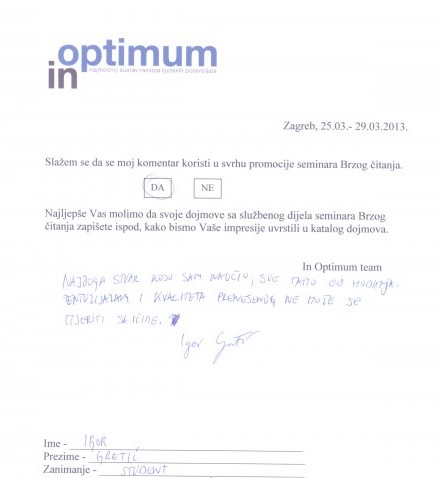 in optimum
najmoćniji sustav razvoja ljudskih potencijala
Zagreb, 25.03.- 29.03.2013.
Slažem se da se moj komentar koristi u svrhu promocije seminara Brzog čitanja.
DA NE
Najljepše Vas molimo da svoje dojmove sa službenog dijela seminara Brzog
čitanja zapišete ispod, kako bismo Vaše impresije uvrstili u katalog dojmova.
In Optimum team
NAJBOLJA STVAR KOJU SAM NAUČIO, SVE TAMO OD HODANJA.
ENTUZIJAZAM I KVALITETA PRENESENOG NE MOŽE SE
MJERITI SA IČIME.
Igor
Ime - IGOR
Prezime - GRETIĆ
Zanimanje - STUDENT